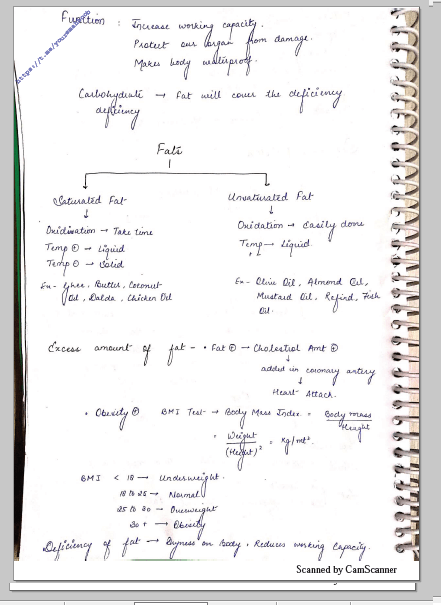 Function : Increase working capacity.
Protect our organ from damage.
Makes body waterproof.
Carbohydrate → Fat will cover the deficiency
deficiency
Fats
Saturated Fat
Unsaturated Fat
Oxidisation → Take time
Oxidation → Easily done
Temp ⊕ → Liquid
Temp → Liquid
Temp ⊖ → Solid
Ex - Ghee, Butter, Coconut
Oil, Dalda, Chicken Oil
Ex - Olive Oil, Almond Oil,
Mustard Oil, Refind, Fish
Oil.
Excess amount of fat - • Fat ⊕ → Cholestrol Amt ⊕
↓
added in coronary artery
↓
Heart Attack.
• Obesity ⊕ BMI Test → Body Mass Index = Body mass / Height
= Weight / (Height)² = kg/mt².
BMI < 18 → Underweight.
18 to 25 → Normal
25 to 30 → Overweight
30 + → Obesity
Deficiency of fat → Dryness on Body, Reduces working Capacity.
Scanned by CamScanner